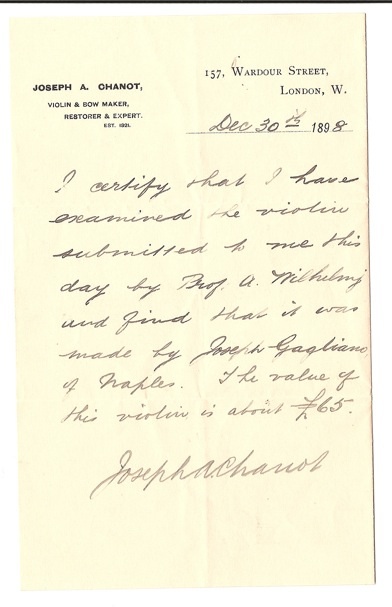 JOSEPH A. CHANOT,
VIOLIN & BOW MAKER,
RESTORER & EXPERT.
EST. 1821.
157, WARDOUR STREET,
LONDON, W.
Dec 30th 1898
I certify that I have
examined the violin
submitted to me this
day by Prof. A. Wilhelmj
and find that it was
made by Joseph Gagliano
of Naples. The value of
this violin is about £65.
Joseph A. Chanot